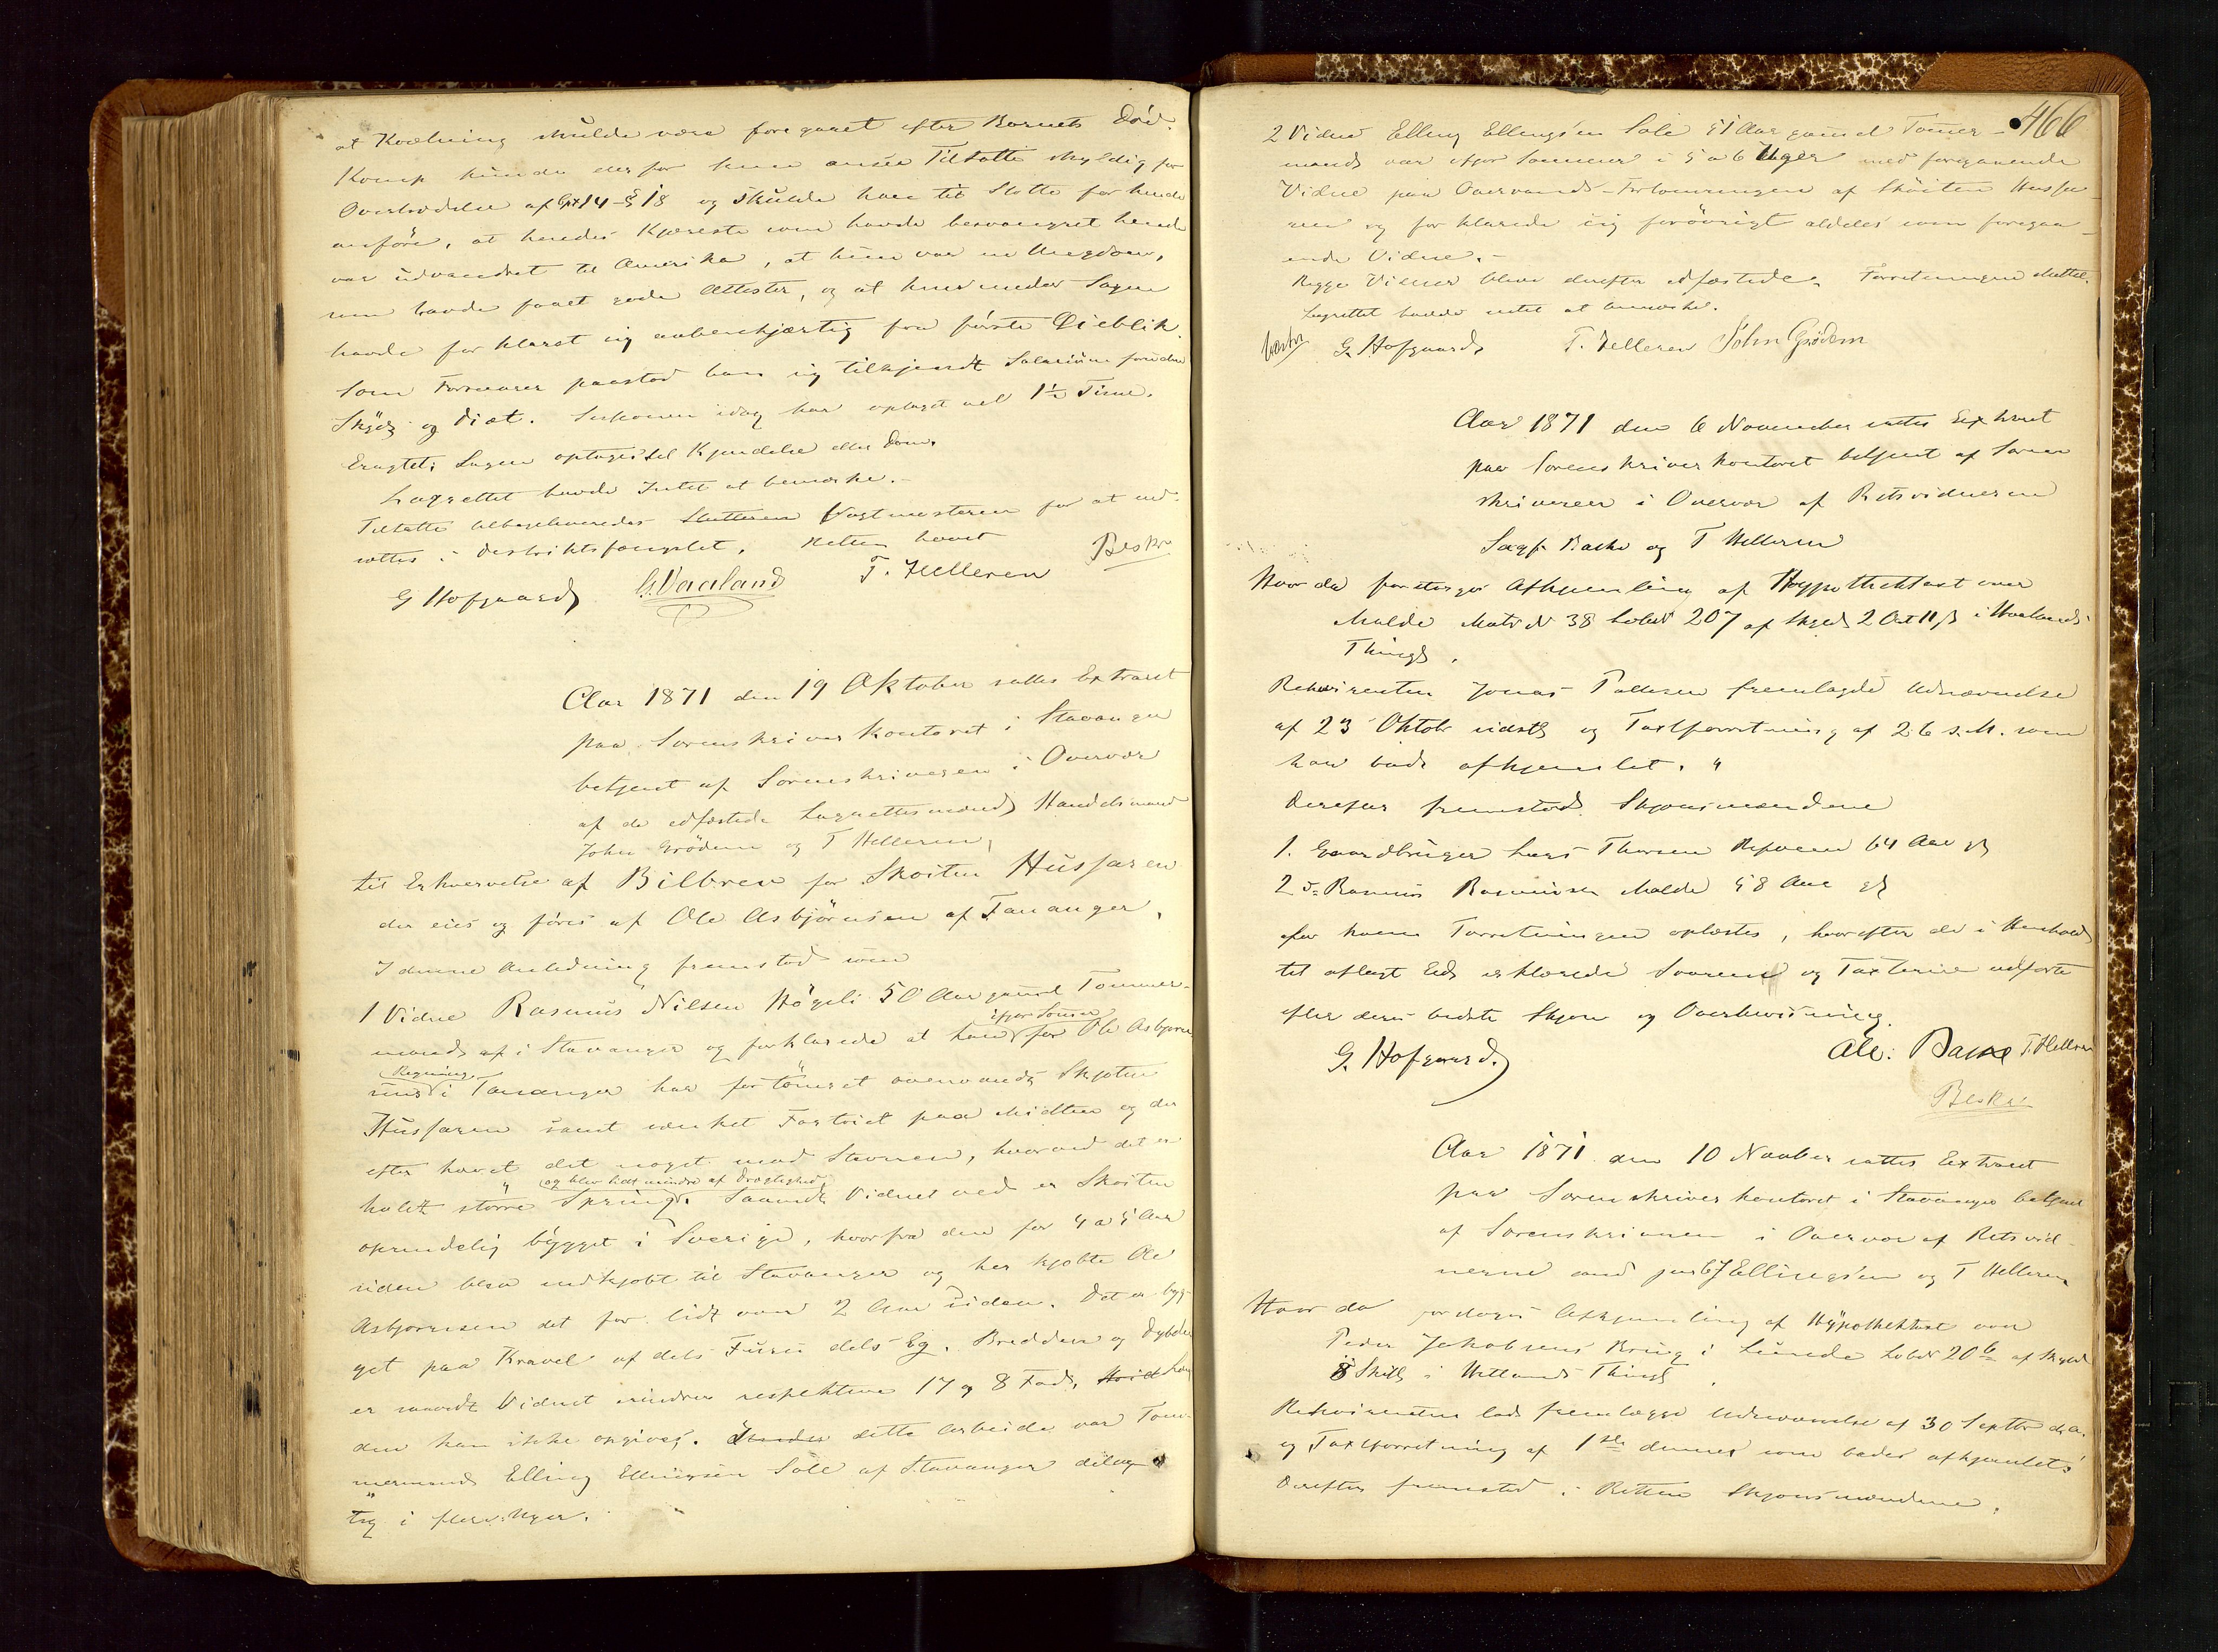 at Kvælning skulde være foregaaet efter Barnets Død.
Komp kunde derfor kun ansee Tiltalte skyldig for
Overtrædelse af Cp 14 § 18 og skulde han til Støtte for hende
anføre, at hendes Kjæreste som havde besvangret hende
var udvandret til Amerika, at hun var en Ungdom,
som havde faaet gode Attester, og at hun under Sagen
havde forklaret sig aabenhjærtig fra første Øieblik
Som Forsvarer paastod han sig tilkjendt Salarium foruden
Skyds og Diæt. Sessionen idag har optaget vel 1½ Time.
Eragtet: Sagen optages til Kjendelse eller Dom.
Lagrettet havde Intet at bemærke.
Tiltalte tilbageleveredes Slutteren Vagtmesteren for at ind-
sættes i Distriktsfængslet. Retten hævet
G Hofgaard G. Vaaland T. Helleren Beskr
Aar 1871 den 19 Oktober sattes Extraret
paa Sorenskriverkontoret i Stavanger
betjent af Sorenskriveren i Overvær
af de edfæstede Lagrettesmænd Handelsmand
John Grödem og T Helleren,
til Erhvervelse af Bilbrev for Skøiten Hussaren
der eies og føres af Ole Asbjörnsen af Tananger.
I denne Anledning fremstod som
1 Vidne Rasmus Nilsen Högeli 50 Aar gammel Tømmer-
ifjor Sommer
mand af i Stavanger og forklarede at han for Ole Asbjørn
Regning
sens i Tananger har fortömret ovenvands Skjøten
Hussaren samt sænket Fartøiet paa Midten og der
efter hævet det noget mod Stævnen, hvorved det er
og blev lidt mindre af Drægtighed
holdt større Spring. Saavidt Vidnet ved er Skøiten
oprindelig bygget i Sverige, hvorfra den for 4 a 5 Aar
siden blev indkjøbt til Stavanger og her kjøbte Ole
Asbjørnsen det for lidt over 2 Aar siden. Det er byg-
get paa Kravel af dels Furu dels Eg. Bredden og Dybden
er saavidt Vidnet erindrer respektive 17 og 8 Fod,
den kan ikke opgives. dette Arbeide var Tøm-
mermand Elling Ellingsen Sole af Stavanger deltag
tig i flere Uger.
466
2 Vidne Elling Ellingsen Sole 51 Aar gammel Tømer-
mand var ifjor Sommer i 5 a 6 Uger med foregaaende
Vidne paa Overvands-Fortømringen af Skøiten Hussa-
ren og forklarede sig forøvrigt aldeles som foregaa-
ende Vidne.
Begge Vidner bleve derefter edfæstede. Forretningen sluttet.
Lagrettet havde intet at bemærke.
G. Hofgaard T. Helleren John Grödem
Aar 1871 den 6 November sattes Extraret
paa Sorenskriverkontoret betjent af Soren
skriveren i Overvær af Retsvidnerne
Sagf. Bache og T Helleren
Hvor da foretoges Afhjemling af Hypothektaxt over
Malde Matr N 38 Løbn 207 af Skyld 2 Ort 11 ß i Haalands
Thingl.
Rekvirenten Jonas Pallesen fremlagde Udnævnelse
af 23 Oktob sidstl og Taxtforretning af 26 s.M. som
han bad afhjemlet.
Derefter fremstod Skjønsmændene
1. Gaardbruger Lars Thorsen Revheim 64 Aar gl
2 do Rasmus Rasmussen Malde 58 Aar gl
for hvem Forretningen oplæstes, hvorefter de i Henhold
til aflagt Ed erklærede Svarene og Taxterne udførte
efter deres bedste Skjøn og Overbevisning.
G. Hofgaard. Ale: Bache T. Helleren
Beskr
Aar 1871 den 10 Novber sattes Extraret
paa Sorenskriverkontoret i Stavanger betjent
af Sorenskriveren i Overvær af Retsvid-
nerne Ellingsen og T Helleren
Hvor da foretoges Afhjemling af Hypothektaxt over
Peder Jakobsens Brug i Lunde Løbn 20 b af Skyld
8 Skill i Hetlands Thingl.
Rekvirenten lod fremlægge Udnævnelse af 30 Septbr d.A.
og Taxtforretning af 1ste dennes som bades afhjemlet
Derefter fremstod i Retten Skjønsmændene.